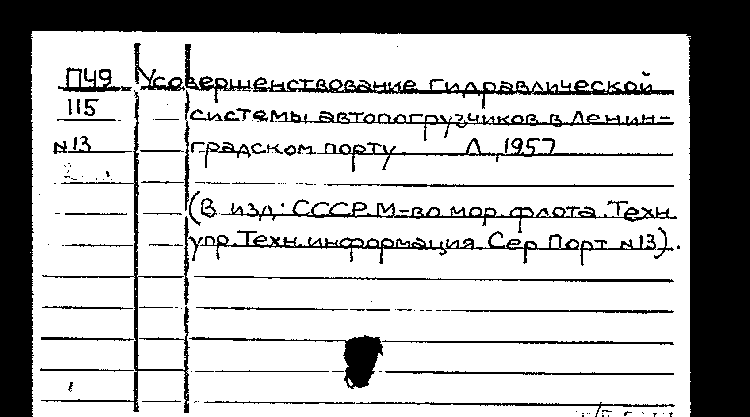 П49 Усовершенствование гидравлической
115 системы автопогрузчиков в Ленин-
N13 градском порту. Л, 1957
(В изд: СССР М-во мор. флота. Техн.
упр. Техн. информация. Сер Порт N13).